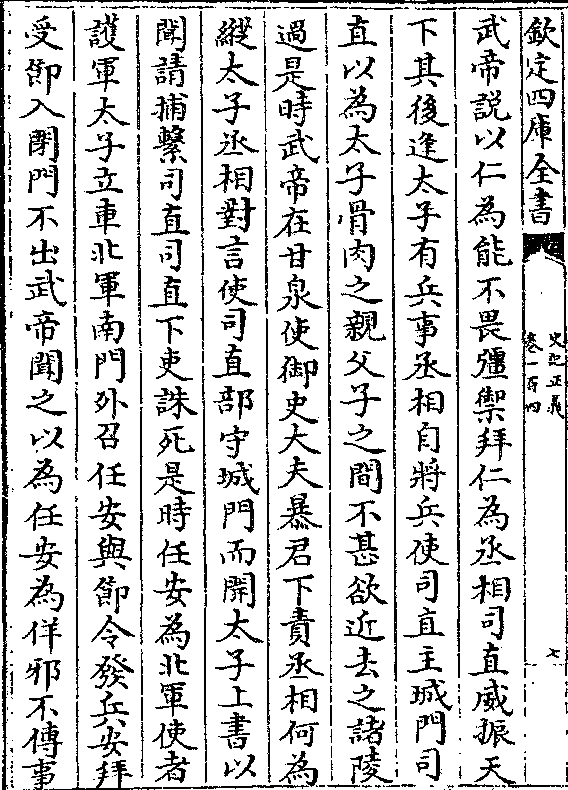 欽定四庫全書
史記正義
卷一百四
七
武帝説以仁為能不畏彊禦拜仁為丞相司直威振天
下其後逢太子有兵事丞相自將兵使司直主城門司
直以為太子骨肉之親父子之間不甚欲近去之諸陵
過是時武帝在甘泉使御史大夫暴君下責丞相何為
縱太子丞相對言使司直部守城門而開太子上書以
聞請捕繫司直司直下吏誅死是時任安為北軍使者
護軍太子立車北軍南門外召任安與節令發兵安拜
受節入閉門不出武帝聞之以為任安為佯邪不傅事